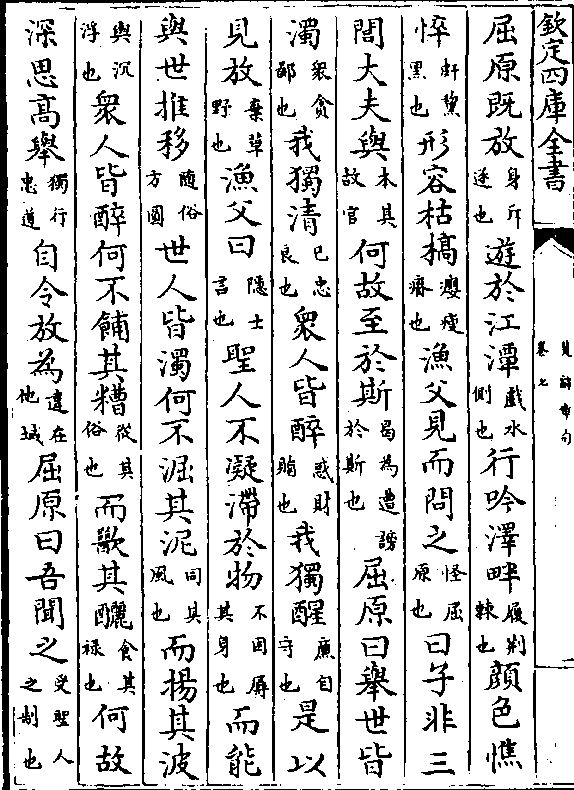 欽定四庫全書
卷七
屈原既放身斥逐也遊於江潭戲水側也行吟澤畔履荆棘也顔色憔
悴皯黴黑也形容枯槁癯瘦瘠也漁父見而問之怪屈原也曰子非三
閭大夫與本其故官何故至於斯曷為遭謗於斯也屈原曰舉世皆
濁衆貪鄙也我獨清己忠良也衆人皆醉惑財賄也我獨醒廉自守也是以
見放棄草野也漁父曰隱士言也聖人不凝滯於物不困辱其身也而能
與世推移隨俗方圓世人皆濁何不淈其泥同其風也而揚其波
與沉浮也衆人皆醉何不餔其糟從其俗也而歠其釃食其祿也何故
深思高舉獨行忠道自令放為遠在他域屈原曰吾聞之受聖人之制也